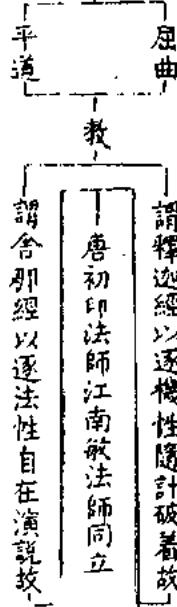 屈曲
平道
教
謂釋迦經以逐機性隨計破着故
唐初印法師江南敏法師同立
謂舍那經以逐法性自在演説故